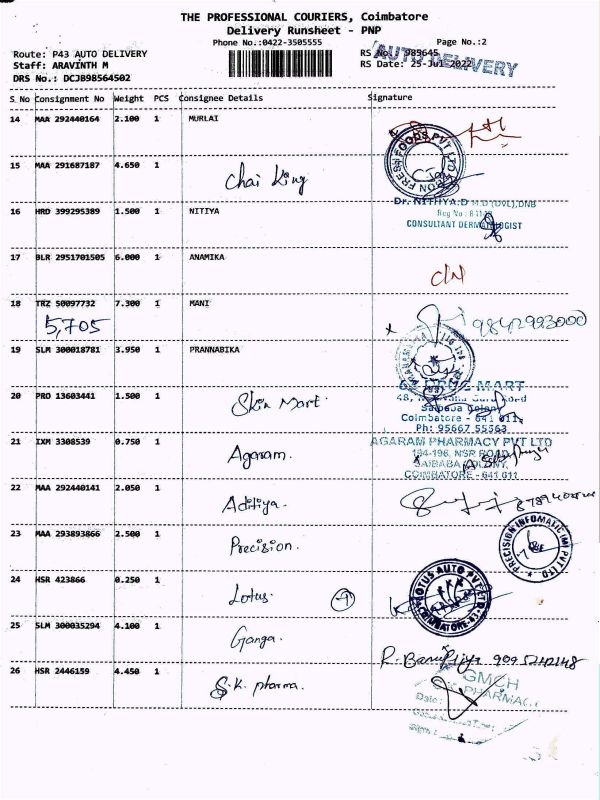 THE PROFESSIONAL COURIERS, Coimbatore
Delivery Runsheet - PNP
Phone No.:0422-3505555
Page No.:2
Route: P43 AUTO DELIVERY
RS No.: 985645
Staff: ARAVINTH M
RS Date: 25-Jul-2022
AUTO DELIVERY
DRS No.: DCJB98564502
S No Consignment No Weight PCS Consignee Details Signature
14 MAA 292440164 2.100 1 MURLAI
15 MAA 291687187 4.650 1 Chai King
16 HRD 399295389 1.500 1 NITIYA
Dr. NITHYA.D M.D (DVL),DNB
CONSULTANT DERMATOLOGIST
17 BLR 2951701505 6.000 1 ANAMIKA
18 TRZ 50097732 7.300 1 MANI
5,705
9842993000
19 SLM 300018781 3.950 1 PRANNABIKA
20 PRO 13603441 1.500 1 Skin Mart.
DRUG MART
Coimbatore - 641 011.
Ph: 95667 55563
21 IXM 3308539 0.750 1 Agaram.
AGARAM PHARMACY PVT LTD
184-196, NSR ROAD
SAIBABA COLONY,
COIMBATORE - 641 011
22 MAA 292440141 2.050 1 Aditiya.
23 MAA 293893866 2.500 1 Precision.
PRECISION INFOMATIC (M) PVT LTD
24 HSR 423866 0.250 1 Lotus.
LOTUS AUTO PVT LTD
25 SLM 300035294 4.100 1 Ganga.
26 HSR 2446159 4.450 1 S.K. pharma.
GMCH
PHARMACY
Date: